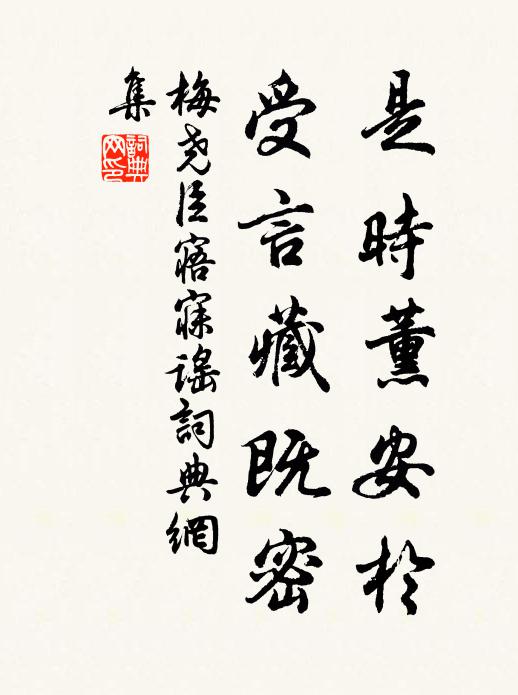 是時薰安於
受言藏既密
梅堯臣寤寐謠詞典網
集
詞典網印